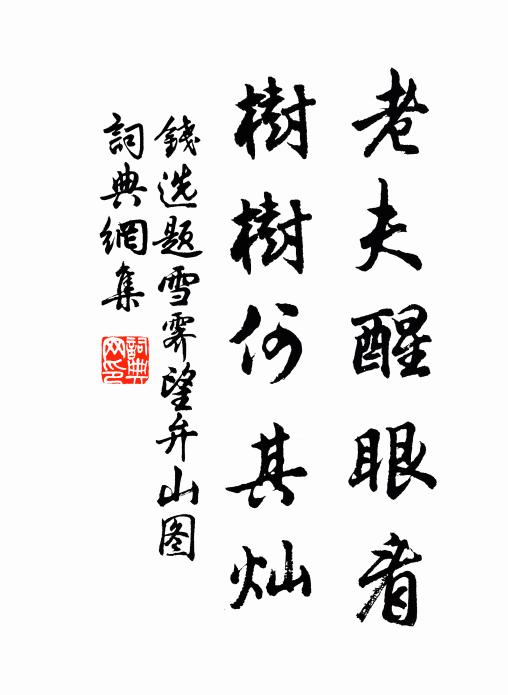 老夫醒眼看
樹樹何其灿
錢选题雪霁望弁山图
詞典網集
詞典网印